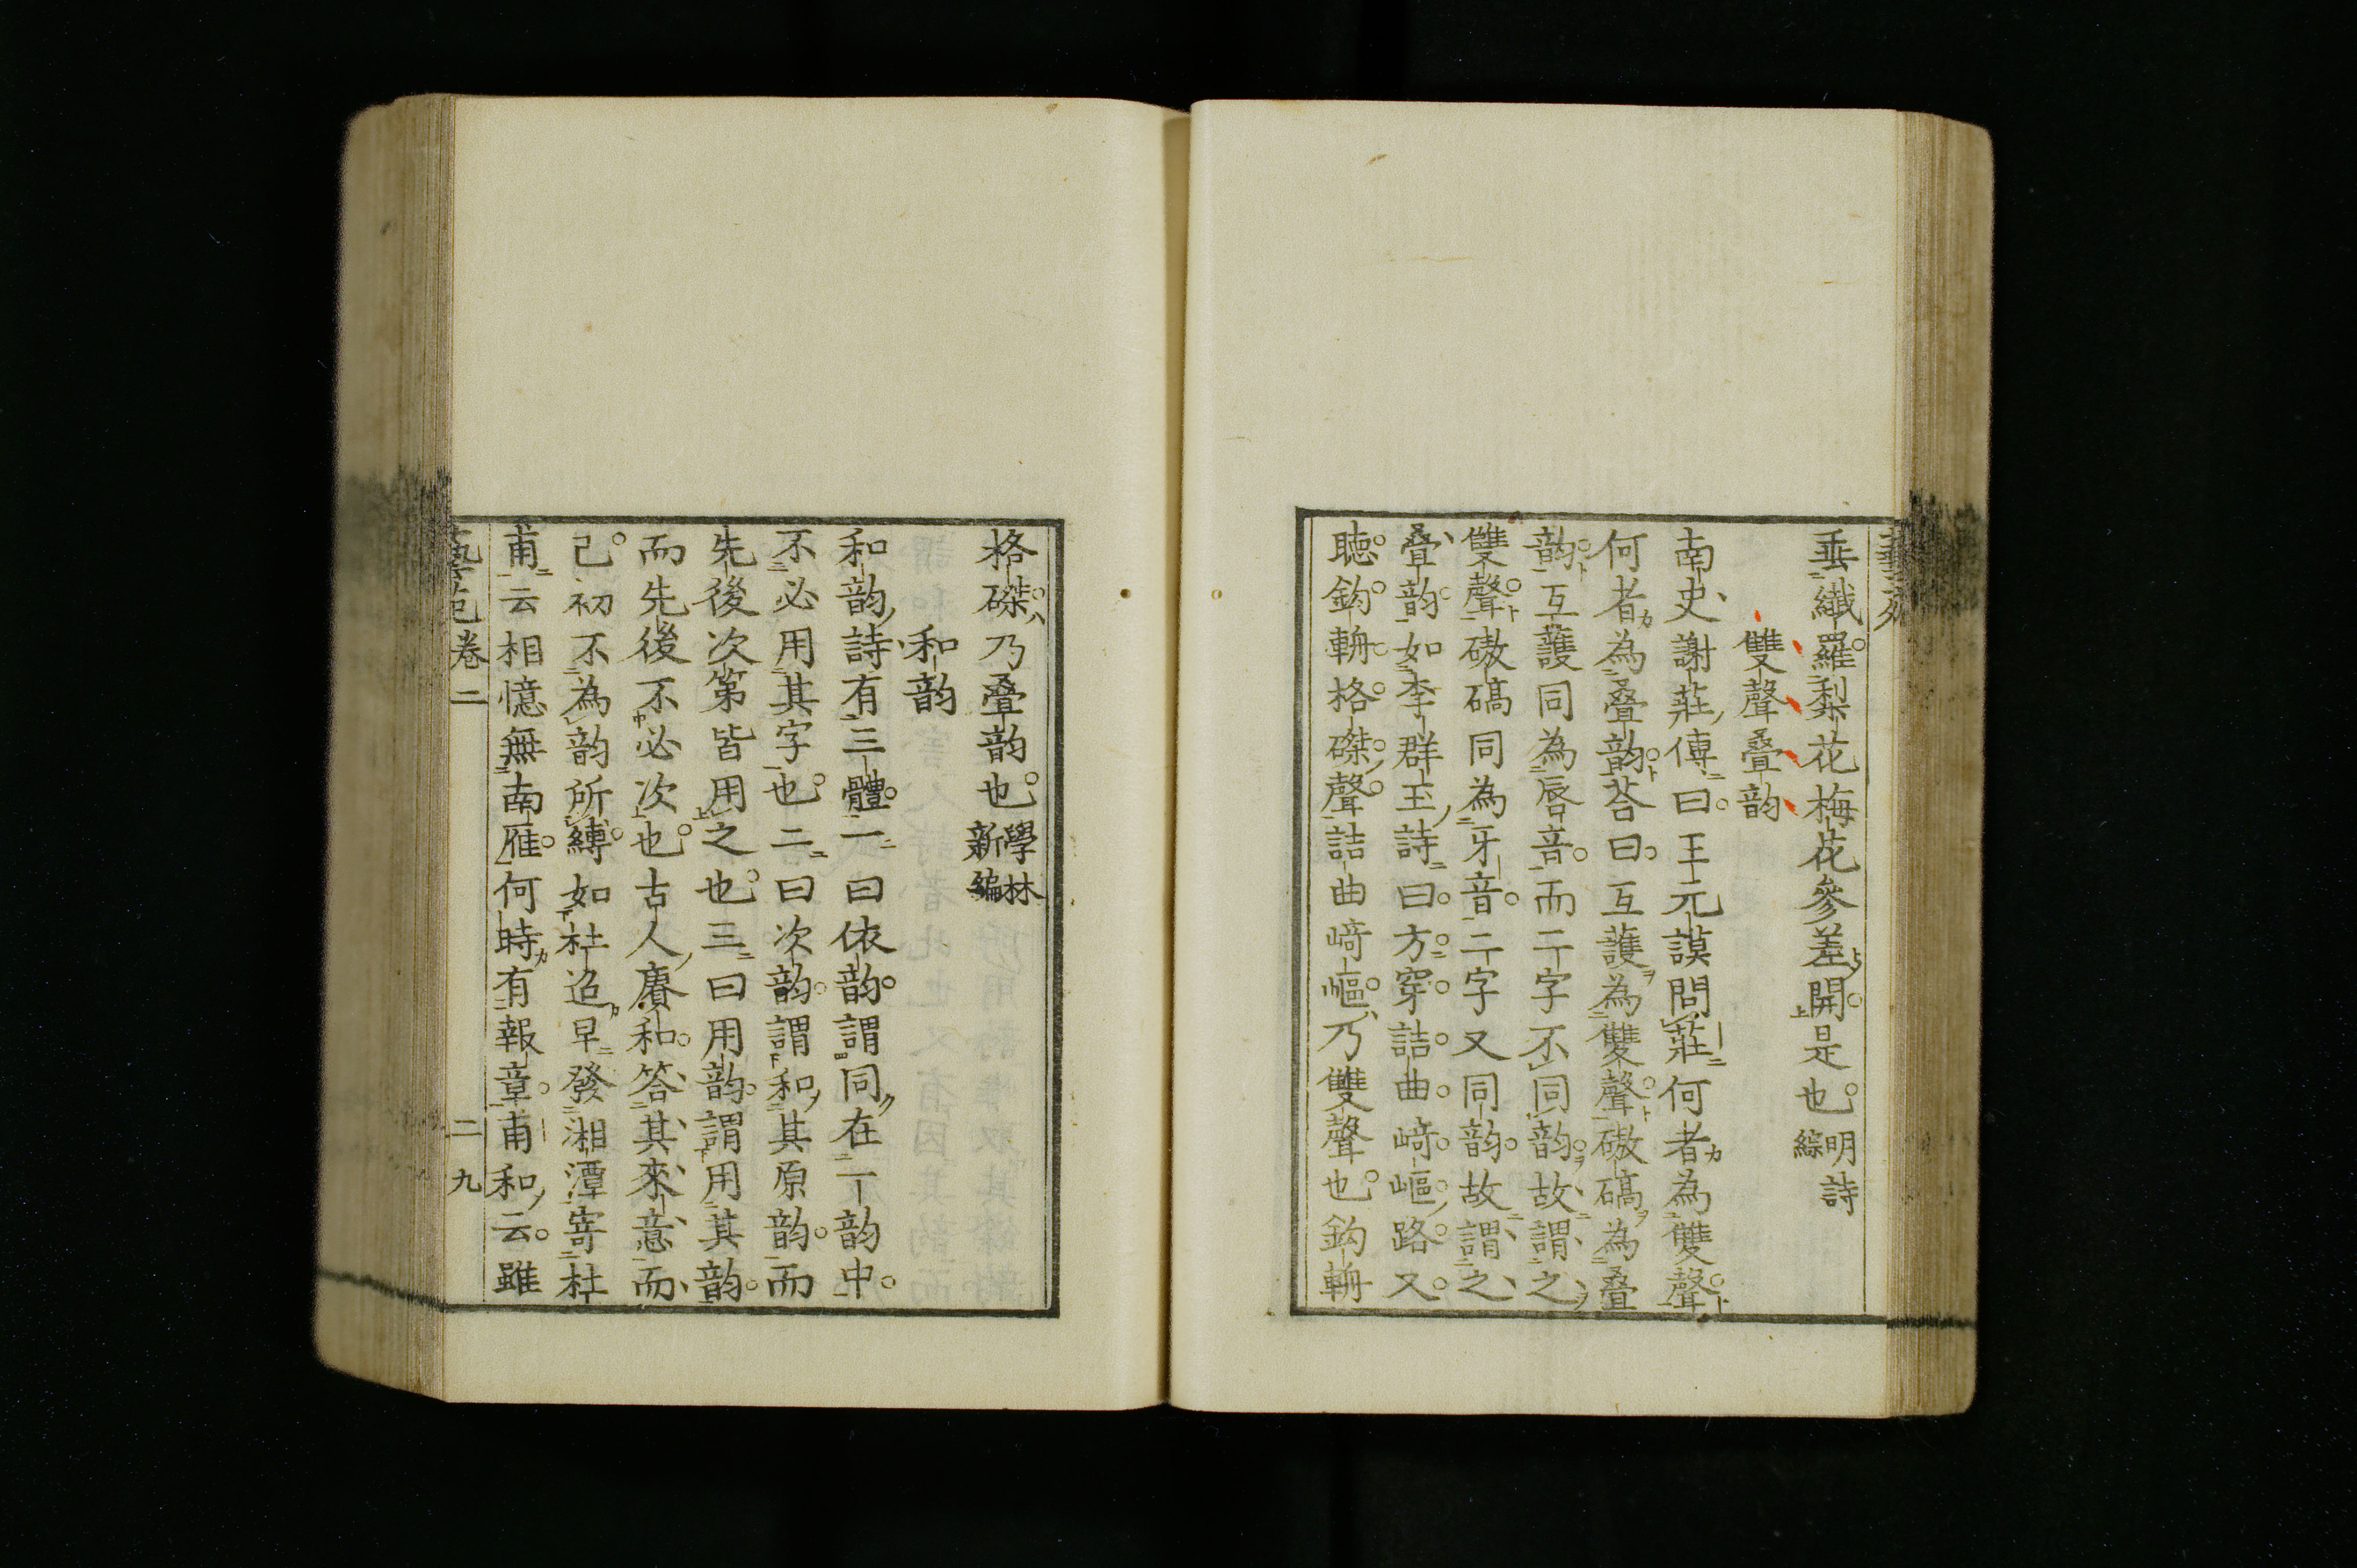 垂纖羅梨花梅花參差開是也明詩綜
雙聲叠韵
南史謝莊傳曰王元謨問莊何者為雙聲
何者為叠韵荅曰互護為雙聲磝碻為叠
韵互護同為唇音而二字不同韵故謂之
雙聲磝碻同為牙音二字又同韵故謂之
叠韵如李群玉詩曰方穿詰曲﨑嶇路又
聽鈎輈格磔聲詰曲﨑嶇乃雙聲也鈎輈
格磔乃叠韵也學林新編
和韵
和韵詩有三體一曰依韵謂同在一韵中
不必用其字也二曰次韵謂和其原韵而
先後次第皆用之也三曰用韵謂用其韵
而先後不必次也古人賡和答其來意而
己初不為韵所縛如杜迢早發湘潭寄杜
甫云相憶無南雁何時有報章甫和云雖
藝苑卷二
二九